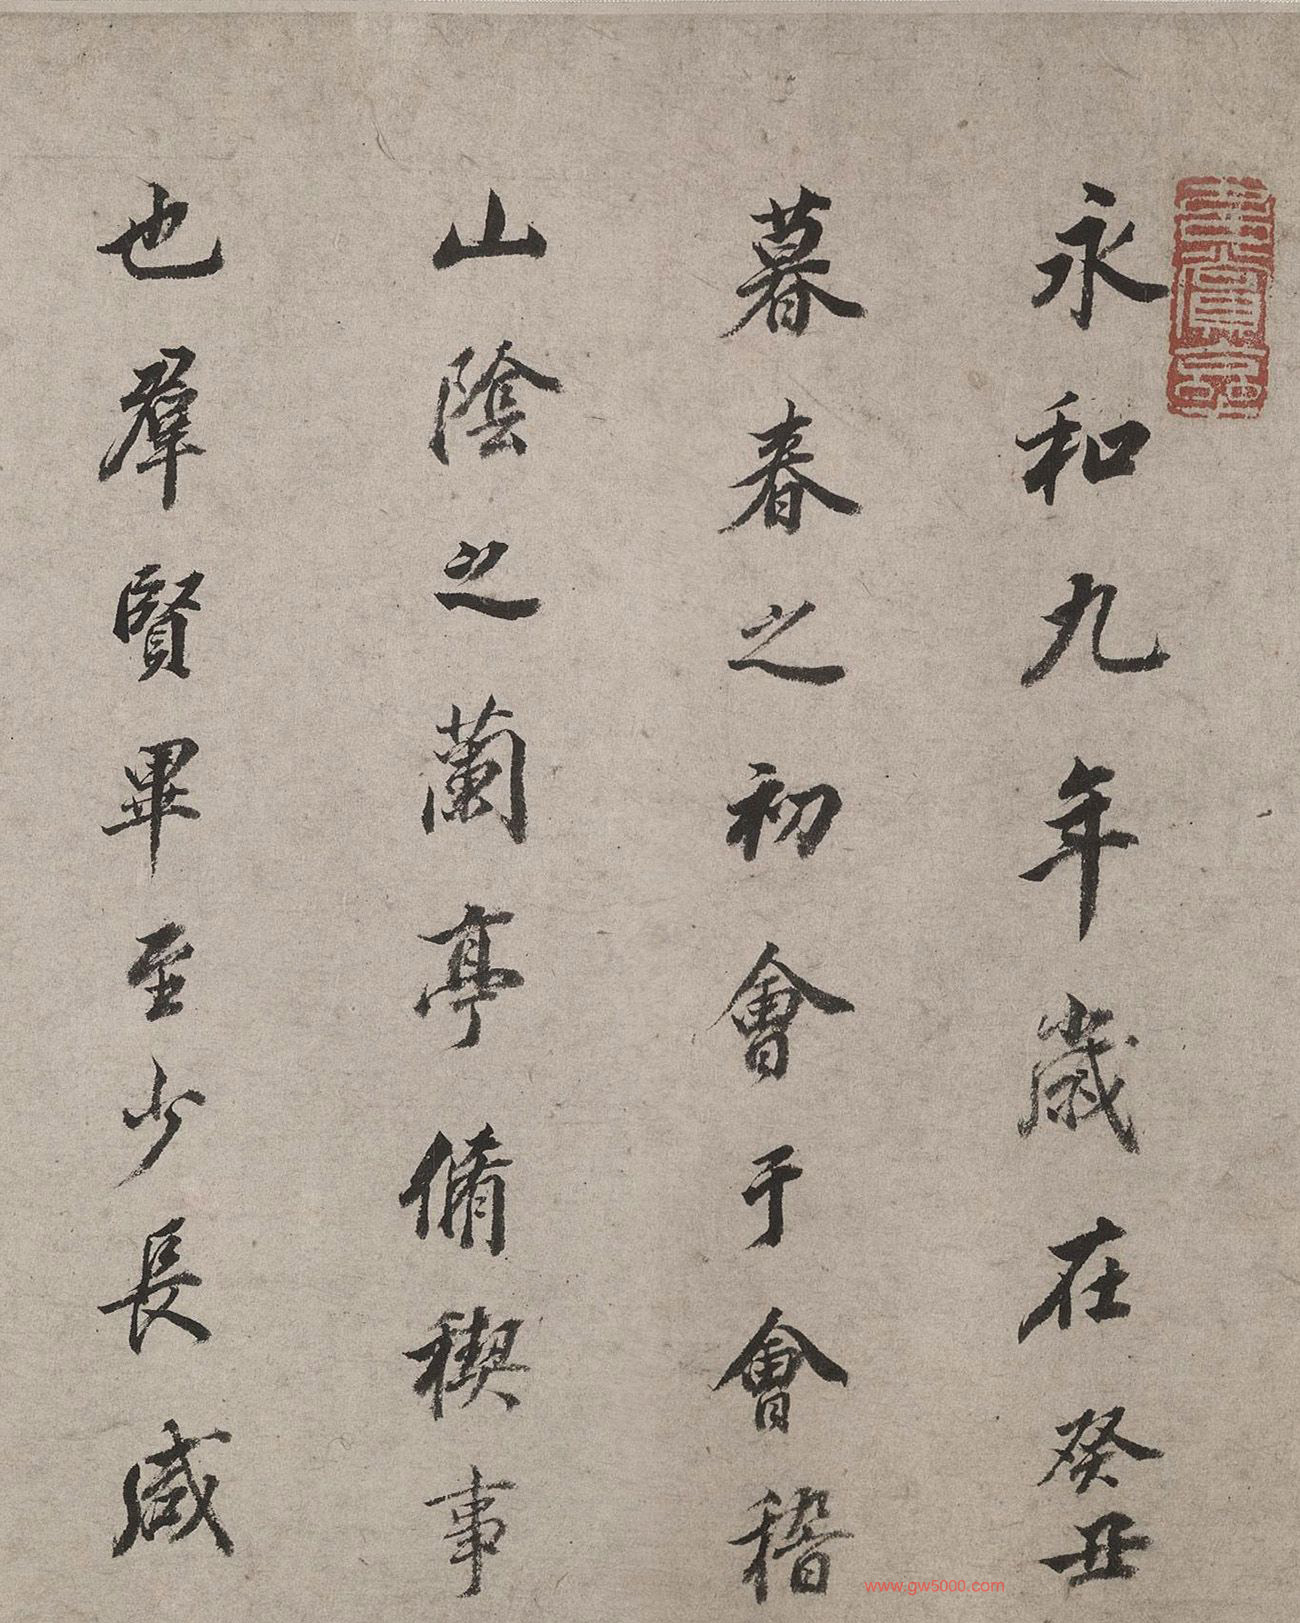 永和九年歲在癸丑
暮春之初會于會稽
山陰之蘭亭脩稧事
也羣賢畢至少長咸
www.gw5000.com